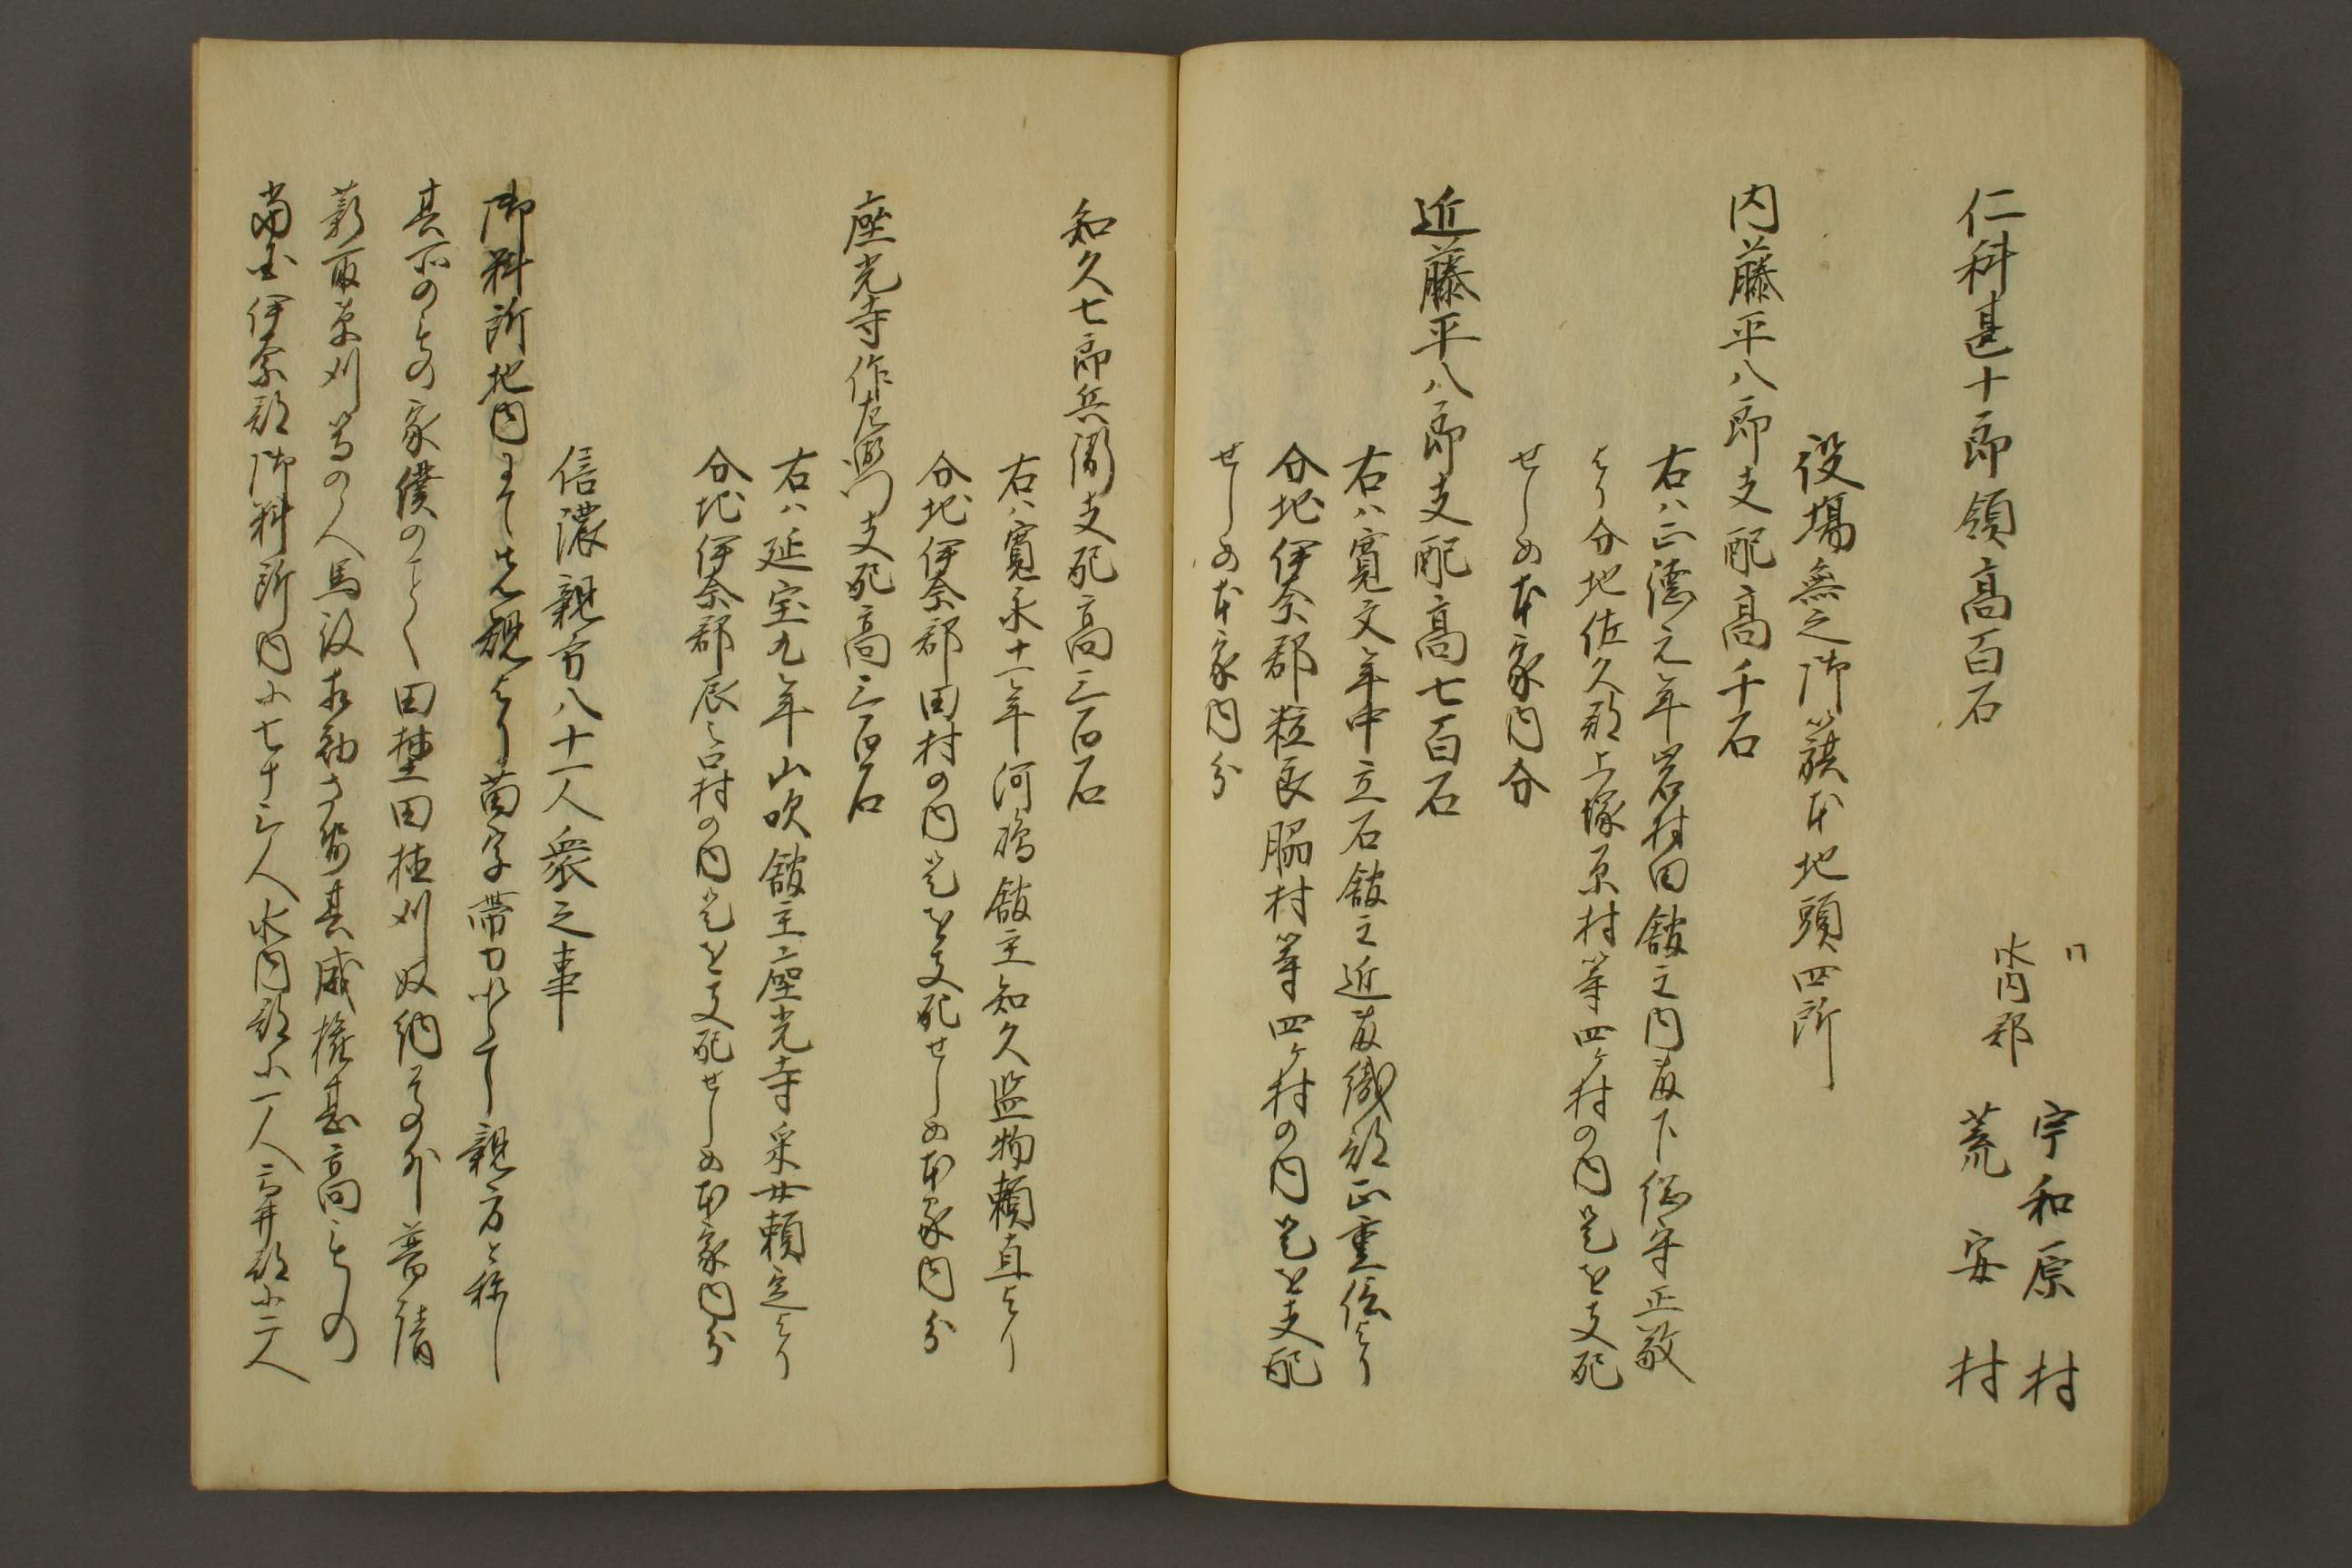 宇和原村
水内郡　荒安村
仁科甚十郎領高百石
役場無之御籏本地頭四所
内藤平八郎支配高千石
右ハ正徳元年岩村田舘主内藤下総守正敬
より分地佐久郡上塚原村等四ケ村の内是を支配
せしめ本家内分
近藤平八郎支配高七百石
右ハ寛文年中立石舘主近藤織部正重信より
分地伊奈郡粒良脇村等四ケ村の内是を支配
せしめ本家内分
知久七郎兵衛支配高三百石
右ハ寛永十一年河嶋舘主知久監物頼直より
分地伊奈郡田村の内是を支配せしめ本家内分
座光寺作左衛門支配高三百石
右ハ延宝九年山吹舘主座光寺采女頼定より
分地伊奈郡辰之口村の内是を支配せしめ本家内分
信濃親方八十一人衆之事
御料所地内にて先規より苗字帯刀いたし親方と称し
其所のもの家僕のことく田埜田植刈収納其外普請
薪取草刈等の人馬役相勤させ其威権甚高きもの
当国伊奈郡御料所内に七十三人水内郡に一人高井郡に二人